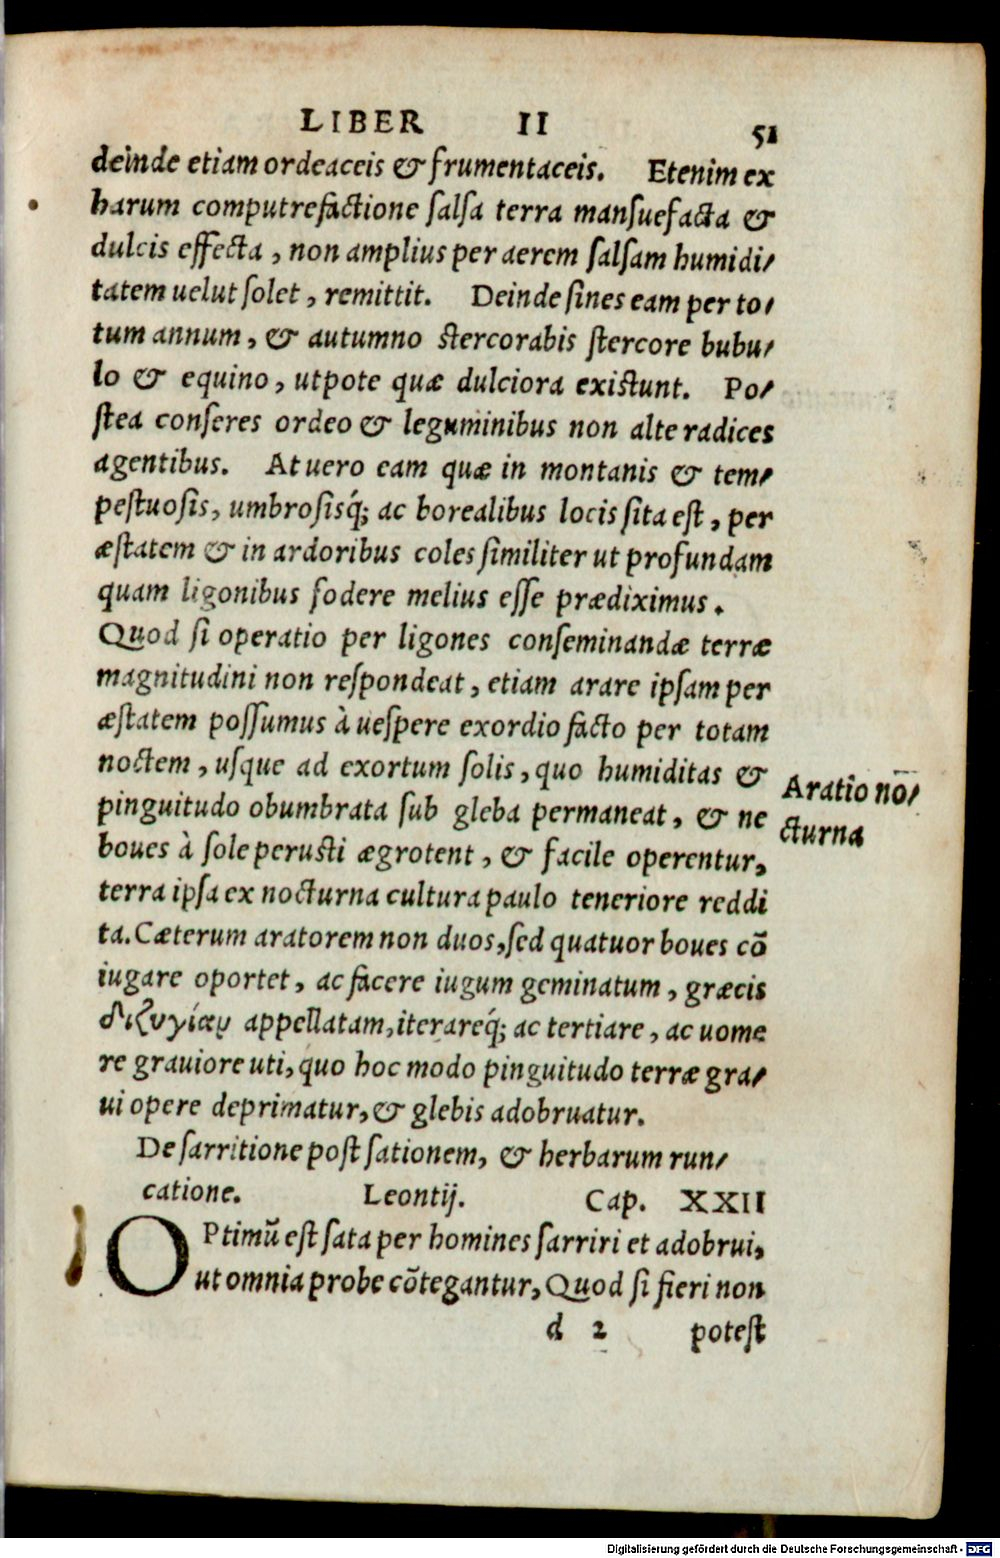 LIBER II 51
deinde etiam ordeaceis & frumentaceis. Etenim ex
harum computrefactione salsa terra mansuefacta &
dulcis effecta, non amplius per aerem salsam humidi/
tatem uelut solet, remittit. Deinde sines eam per to/
tum annum, & autumno stercorabis stercore bubu/
lo & equino, utpote quæ dulciora existunt. Po/
stea conseres ordeo & leguminibus non alte radices
agentibus. At uero eam quæ in montanis & tem/
pestuosis, umbrosisq́; ac borealibus locis sita est, per
æstatem & in ardoribus coles similiter ut profundam
quam ligonibus fodere melius esse prædiximus.
Quod si operatio per ligones conseminandæ terræ
magnitudini non respondeat, etiam arare ipsam per
æstatem possumus à uespere exordio facto per totam
noctem, usque ad exortum solis, quo humiditas &
pinguitudo obumbrata sub gleba permaneat, & ne
boues à sole perusti ægrotent, & facile operentur,
terra ipsa ex nocturna cultura paulo teneriore reddi
ta. Cæterum aratorem non duos, sed quatuor boues cō
iugare oportet, ac facere iugum geminatum, græcis
διζυγίαν appellatam, iterareq́; ac tertiare, ac uome
re grauiore uti, quo hoc modo pinguitudo terræ gra/
ui opere deprimatur, & glebis adobruatur.
Aratio no̅/
cturna
De sarritione post sationem, & herbarum run/
catione. Leontij. Cap. XXII
OPtimū est sata per homines sarriri et adobrui,
ut omnia probe cōtegantur, Quod si fieri non
d 2 potest
Digitalisierung gefördert durch die Deutsche Forschungsgemeinschaft - DFG